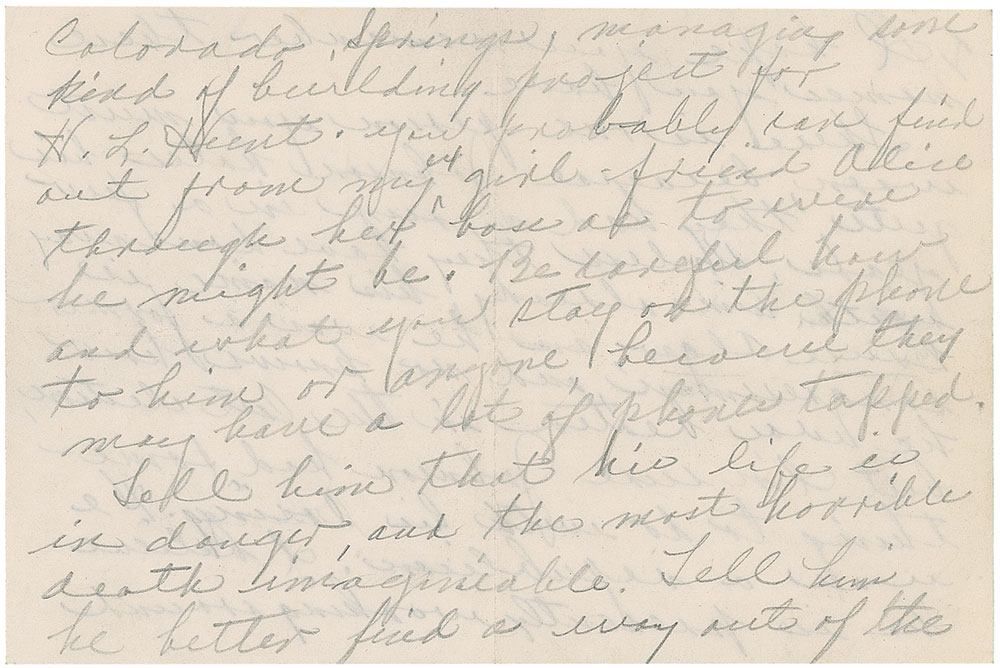 Colorado Springs, managing some
kind of building project for
H. L. Hunt. you probably can find
out from my ex girl-friend Alice
through her boss as to were
he might be. Be careful how
and what you stay on the phone
to him or anyone because they
may have a lot of phones tapped.
Tell him that his life is
in danger, and the most horrible
death imagineable. Tell him
he better find a way out of the